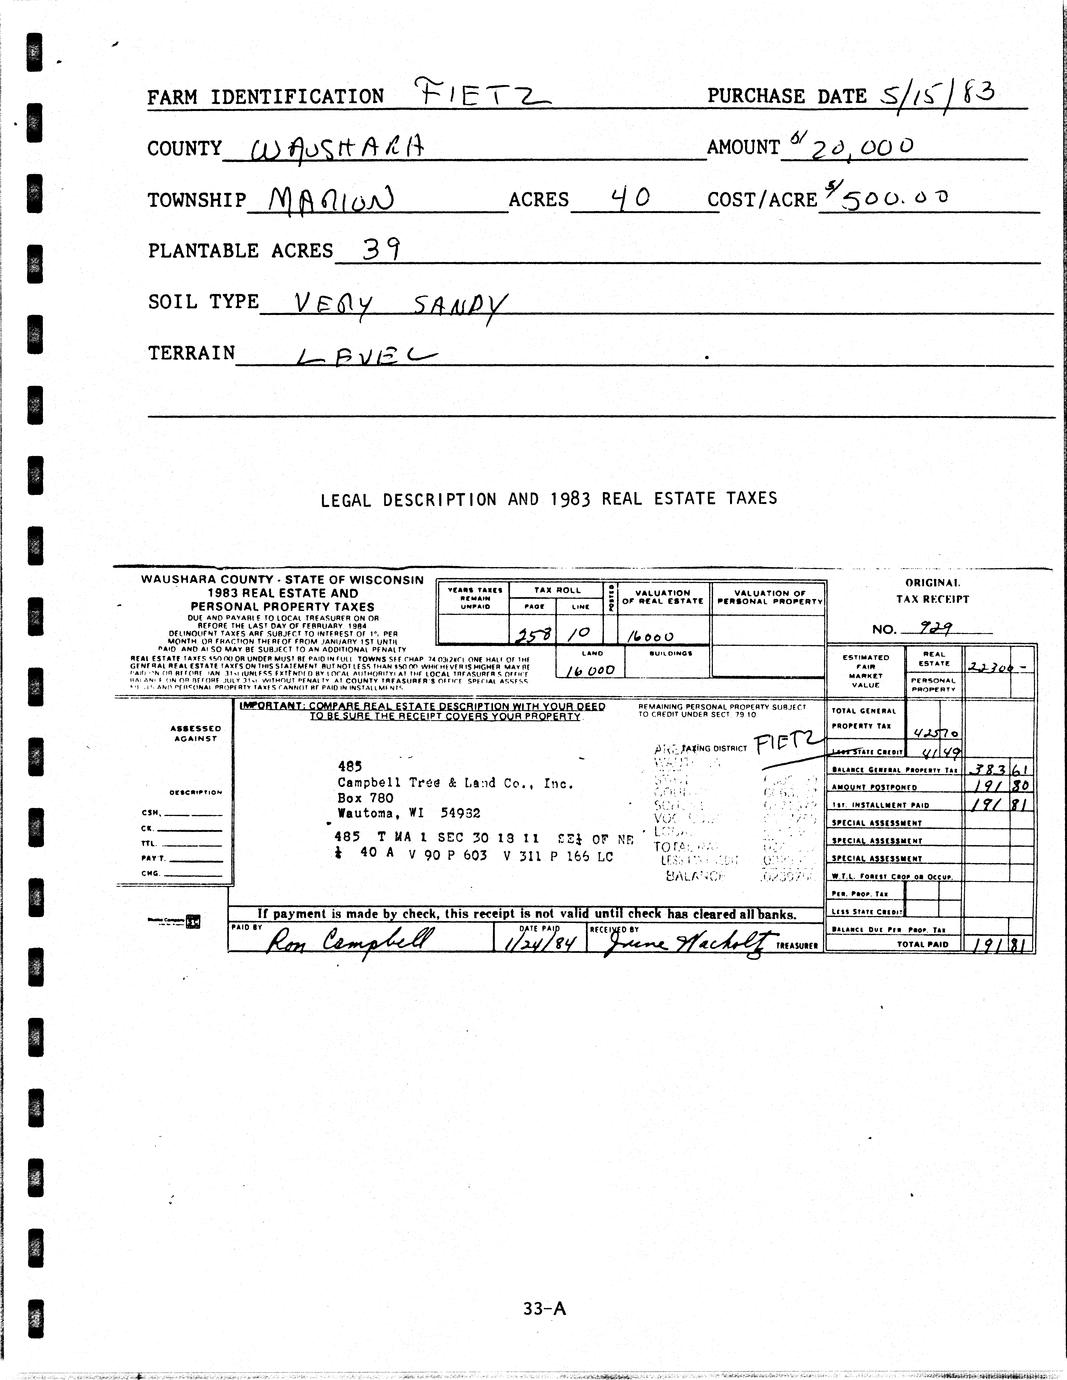 FARM IDENTIFICATION FIETZ PURCHASE DATE 5/15/83
COUNTY WAUSHARA AMOUNT $20,000
TOWNSHIP MARION ACRES 40 COST/ACRE $500.00
PLANTABLE ACRES 39
SOIL TYPE VERY SANDY
TERRAIN LEVEL
LEGAL DESCRIPTION AND 1983 REAL ESTATE TAXES
WAUSHARA COUNTY - STATE OF WISCONSIN
1983 REAL ESTATE AND
PERSONAL PROPERTY TAXES
DUE AND PAYABLE TO LOCAL TREASURER ON OR
BEFORE THE LAST DAY OF FEBRUARY 1984
DELINQUENT TAXES ARE SUBJECT TO INTEREST OF 1% PER
MONTH OR FRACTION THEREOF FROM JANUARY 1ST UNTIL
PAID AND ALSO MAY BE SUBJECT TO AN ADDITIONAL PENALTY
REAL ESTATE TAXES $50.00 OR UNDER MUST BE PAID IN FULL TOWNS SEE CHAP. ONE HALF OF THE
GENERAL REAL ESTATE TAXES ON THIS STATEMENT BUT NOT LESS THAN $50.00 WHICHEVER IS HIGHER MAY BE
PAID ON OR BEFORE JAN 31st (UNLESS EXTENDED BY LOCAL AUTHORITY) AT THE LOCAL TREASURER'S OFFICE
BALANCE ON OR BEFORE JULY 31st WITHOUT PENALTY AT COUNTY TREASURER'S OFFICE SPECIAL ASSESS
AND PERSONAL PROPERTY TAXES CANNOT BE PAID IN INSTALLMENTS
YEARS TAXES REMAIN UNPAID
TAX ROLL
PAGE LINE
258 10
POSTED
VALUATION OF REAL ESTATE
16000
VALUATION OF PERSONAL PROPERTY
LAND BUILDINGS
16000
ORIGINAL
TAX RECEIPT
NO. 929
ESTIMATED FAIR MARKET VALUE
REAL ESTATE 22300-
PERSONAL PROPERTY
IMPORTANT: COMPARE REAL ESTATE DESCRIPTION WITH YOUR DEED
TO BE SURE THE RECEIPT COVERS YOUR PROPERTY.
REMAINING PERSONAL PROPERTY SUBJECT
TO CREDIT UNDER SECT 79 10
ASSESSED
AGAINST
TAXING DISTRICT FIETZ
485
Campbell Tree & Land Co., Inc.
Box 780
Wautoma, WI 54982
485 T MA 1 SEC 30 18 11 OF NE
¼ 40 A V 90 P 603 V 311 P 166 LC
DESCRIPTION
CSH.
CK.
TTL.
PAY'T.
CHG.
BALANCE
TOTAL GENERAL
PROPERTY TAX 425 70
LESS STATE CREDIT 41 49
BALANCE GENERAL PROPERTY TAX 383 61
AMOUNT POSTPONED 191 80
1ST. INSTALLMENT PAID 191 81
SPECIAL ASSESSMENT
SPECIAL ASSESSMENT
SPECIAL ASSESSMENT
W.T.L. FOREST CROP OR OCCUP.
PER. PROP. TAX
LESS STATE CREDIT
BALANCE DUE PER. PROP. TAX
TOTAL PAID 191 81
If payment is made by check, this receipt is not valid until check has cleared all banks.
PAID BY Ron Campbell DATE PAID 1/24/84 RECEIVED BY June Wacholtz TREASURER
33-A